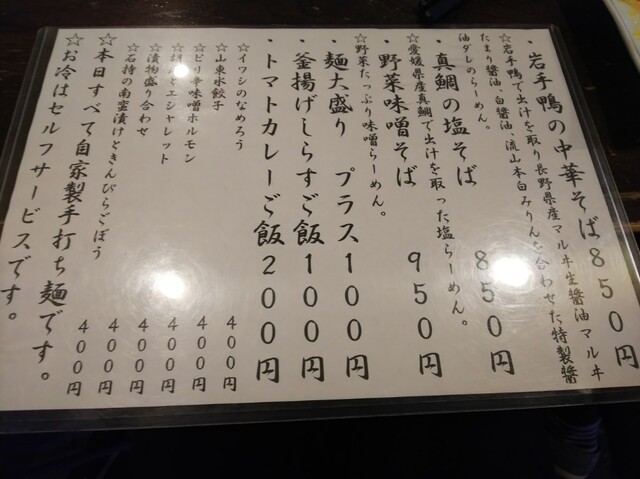 ・岩手鴨の中華そば 850円
☆岩手鴨で出汁を取り長野県産マルヰ生醤油マルヰ
たまり醤油、白醤油、流山本白みりんを合わせた特製醤
油ダレのらーめん。
・真鯛の塩そば 850円
☆愛媛県産真鯛で出汁を取った塩らーめん。
・野菜味噌そば 950円
☆野菜たっぷり味噌らーめん。
・麺大盛り プラス100円
・釜揚げしらすご飯100円
・トマトカレーご飯200円
☆イワシのなめろう 400円
☆山東水餃子 400円
☆ピリ辛味噌ホルモン 400円
エシャレット 400円
☆漬物盛り合わせ 400円
☆石持の南蛮漬けときんぴらごぼう 400円
☆本日すべて自家製手打ち麺です。
☆お冷はセルフサービスです。